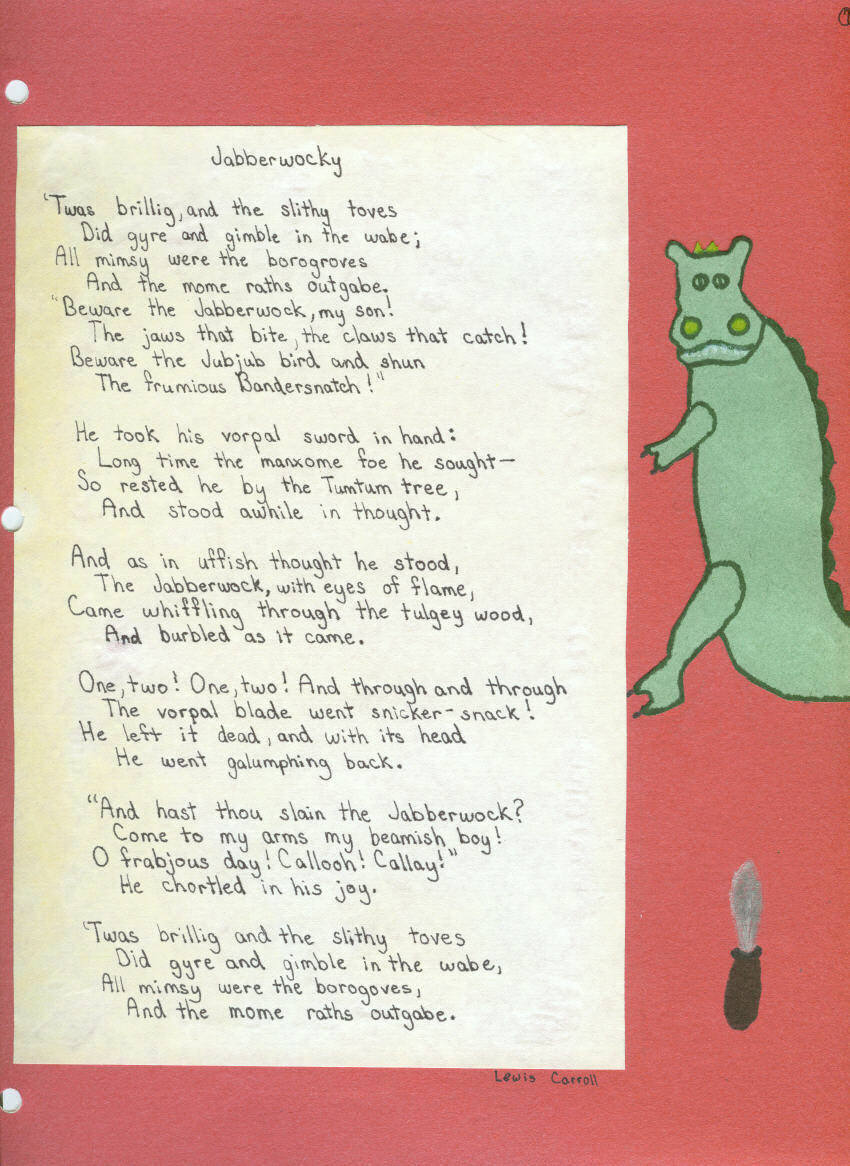 Jabberwocky
'Twas brillig, and the slithy toves
Did gyre and gimble in the wabe;
All mimsy were the borogroves
And the mome raths outgabe.
"Beware the Jabberwock, my son!
The jaws that bite, the claws that catch!
Beware the Jubjub bird and shun
The frumious Bandersnatch!"
He took his vorpal sword in hand:
Long time the manxome foe he sought—
So rested he by the Tumtum tree,
And stood awhile in thought.
And as in uffish thought he stood,
The Jabberwock, with eyes of flame,
Came whiffling through the tulgey wood,
And burbled as it came.
One, two! One, two! And through and through
The vorpal blade went snicker-snack!
He left it dead, and with its head
He went galumphing back.
"And hast thou slain the Jabberwock?
Come to my arms my beamish boy!
O frabjous day! Callooh! Callay!"
He chortled in his joy.
'Twas brillig and the slithy toves
Did gyre and gimble in the wabe,
All mimsy were the borogoves,
And the mome raths outgabe.
Lewis Carroll